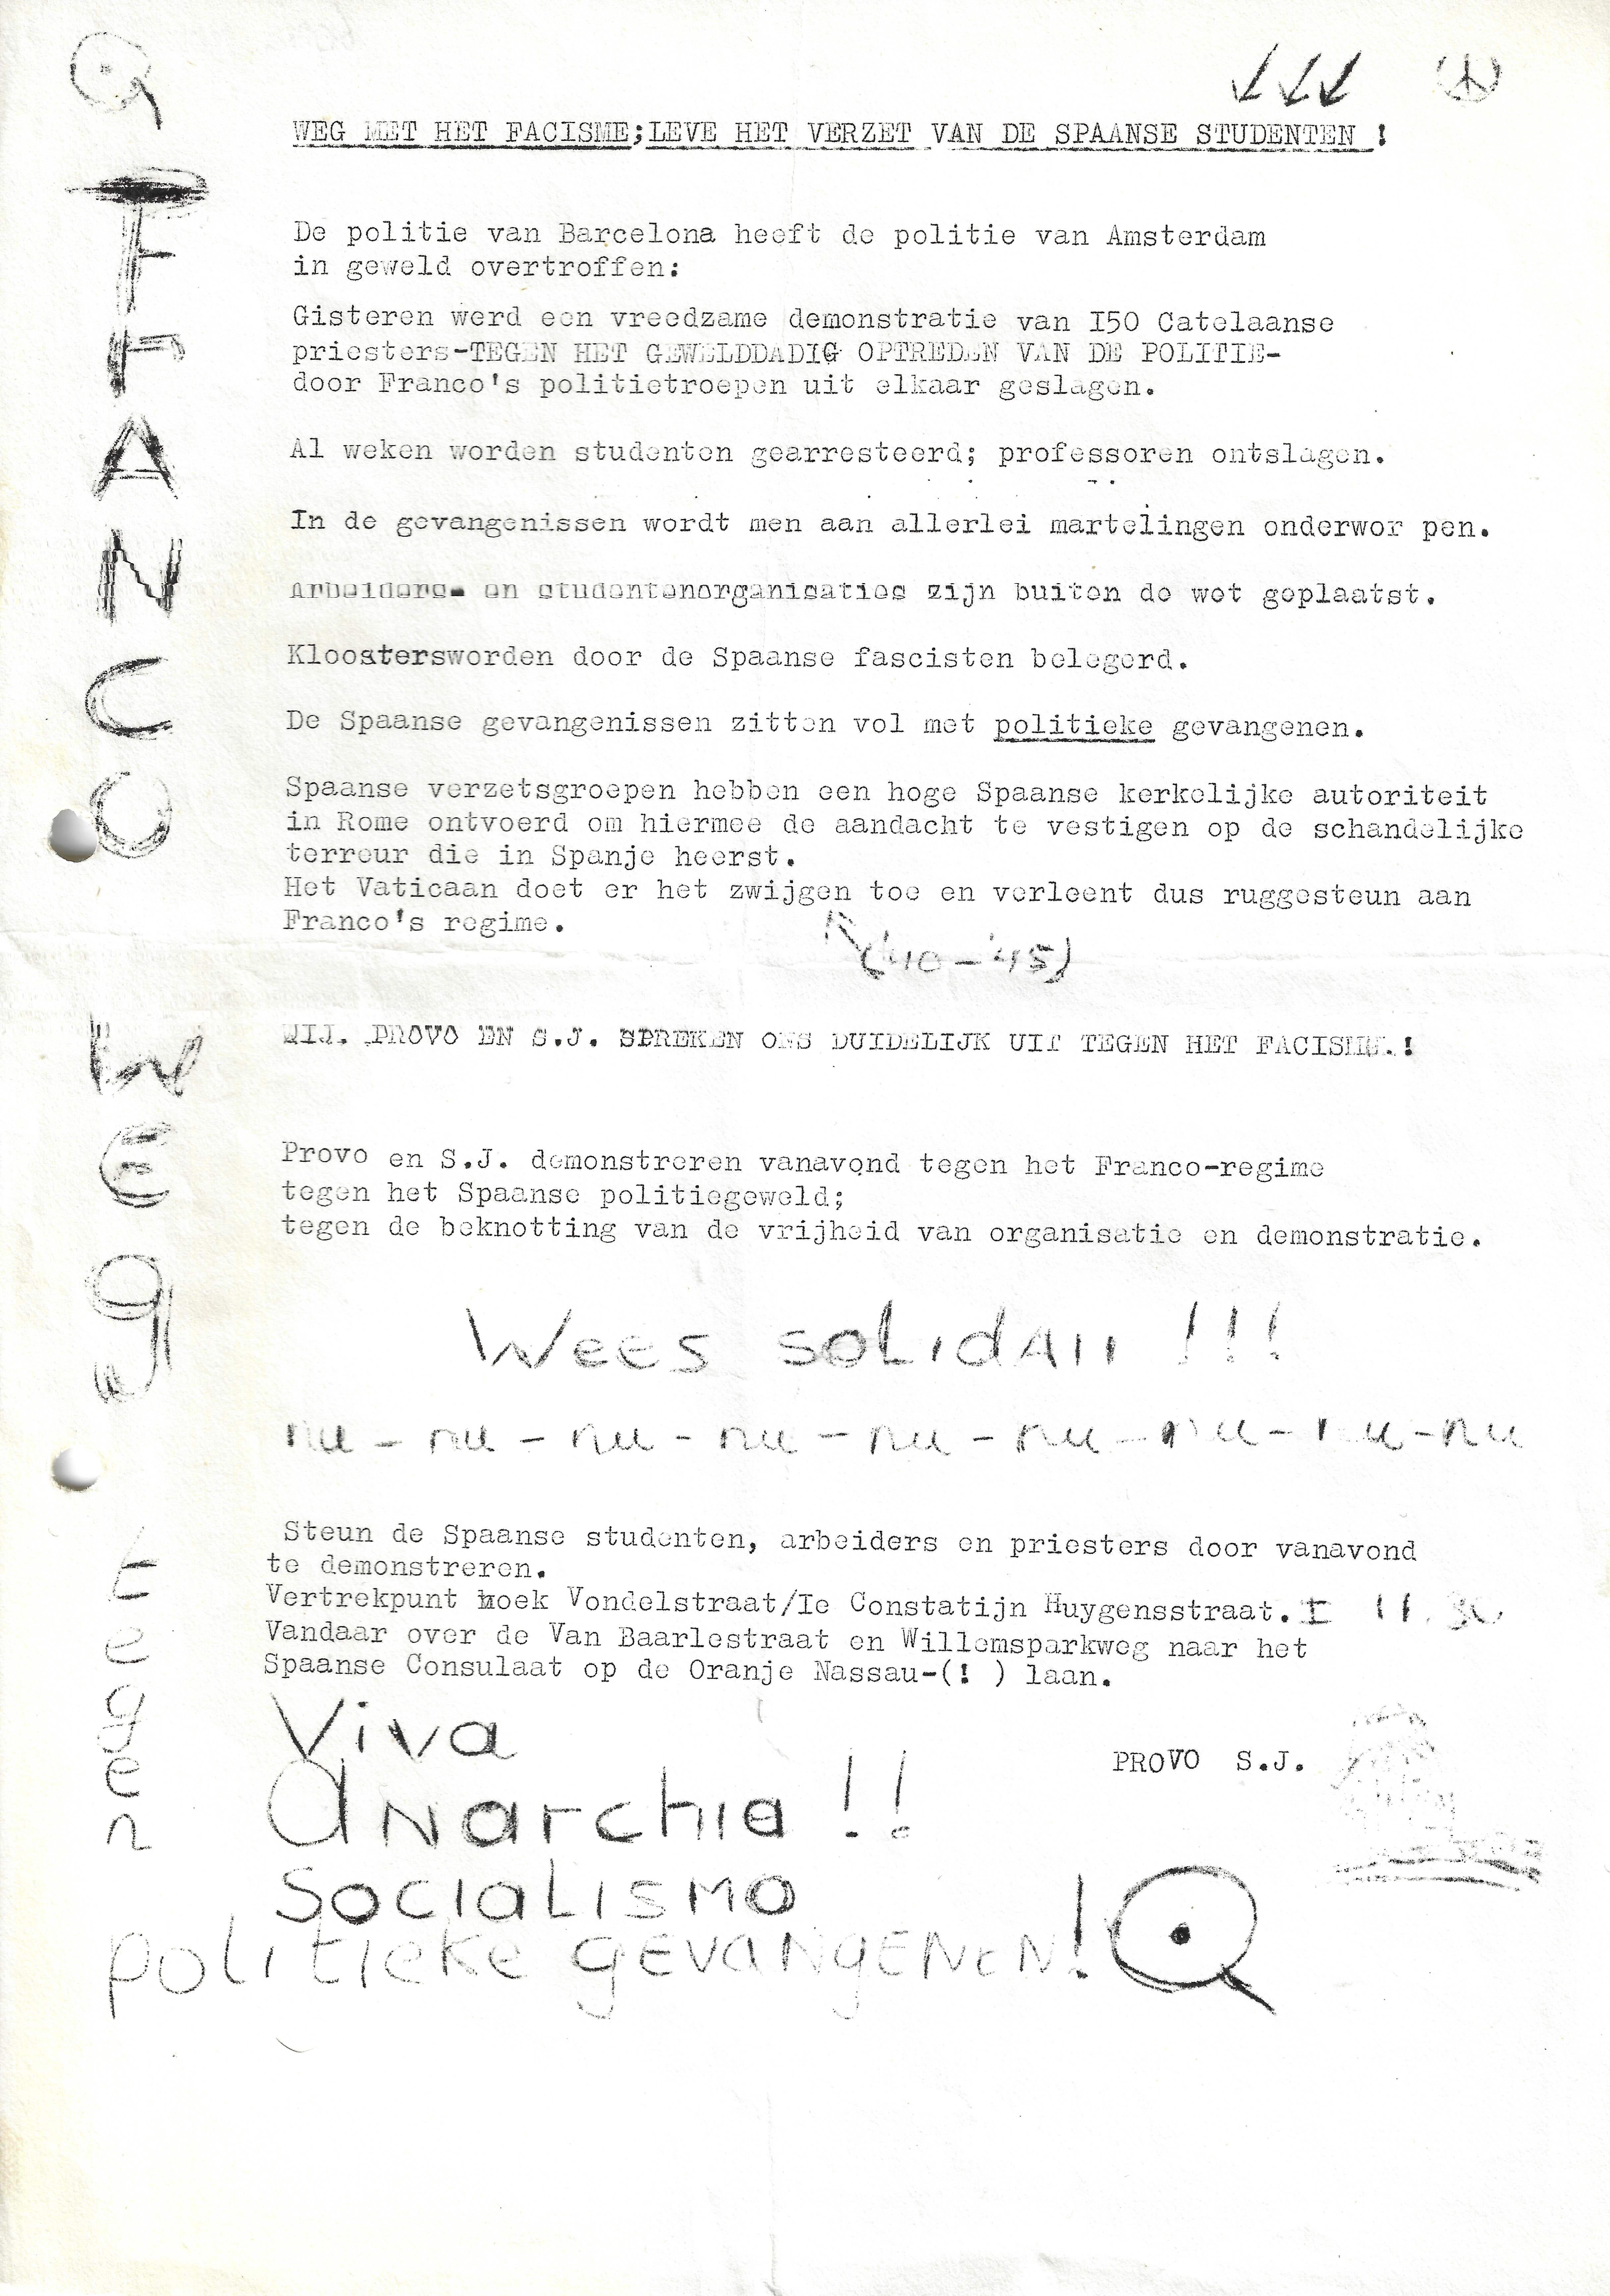 WEG MET HET FACISME;LEVE HET VERZET VAN DE SPAANSE STUDENTEN !
De politie van Barcelona heeft de politie van Amsterdam
in geweld overtroffen:
Gisteren werd een vreedzame demonstratie van I50 Catelaanse
priesters-TEGEN HET GEWELDDADIG OPTREDEN VAN DE POLITIE-
door Franco's politietroepen uit elkaar geslagen.
Al weken worden studenten gearresteerd; professoren ontslagen.
In de gevangenissen wordt men aan allerlei martelingen onderwor pen.
Arbeiders- en studentenorganisaties zijn buiten de wet geplaatst.
Kloostersworden door de Spaanse fascisten belegerd.
De Spaanse gevangenissen zitten vol met politieke gevangenen.
Spaanse verzetsgroepen hebben een hoge Spaanse kerkelijke autoriteit
in Rome ontvoerd om hiermee de aandacht te vestigen op de schandelijke
terreur die in Spanje heerst.
Het Vaticaan doet er het zwijgen toe en verleent dus ruggesteun aan
Franco's regime.
('40-'45)
WIJ. PROVO EN S.J. SPREKEN ONS DUIDELIJK UIT TEGEN HET FACISME.!
Provo en S.J. demonstreren vanavond tegen het Franco-regime
tegen het Spaanse politiegeweld;
tegen de beknotting van de vrijheid van organisatie en demonstratie.
Wees solidair !!!
nu - nu - nu - nu - nu - nu - nu - nu - nu
Steun de Spaanse studenten, arbeiders en priesters door vanavond
te demonstreren.
Vertrekpunt hoek Vondelstraat/Ie Constatijn Huygensstraat. ± 11.30
Vandaar over de Van Baarlestraat en Willemsparkweg naar het
Spaanse Consulaat op de Oranje Nassau-(! ) laan.
PROVO S.J.
Viva
Anarchia !!
Socialismo
FRANCO
WEg
tegen
politieke gevangenen!